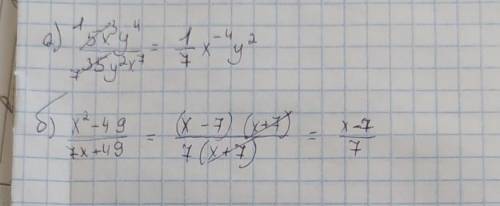 а) ¹5x³y⁴ / ₇35y²x⁷ = 1/7 x⁻⁴y²
б) x²-49 / 7x+49 = (x-7)(x+7) / 7(x+7) = x-7 / 7